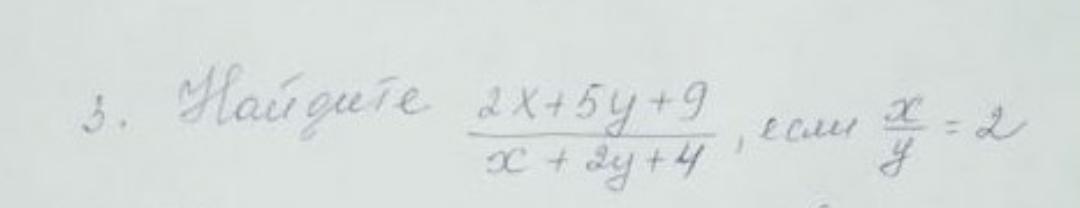 3. Найдите (2x+5y+9)/(x+2y+4), если x/y=2